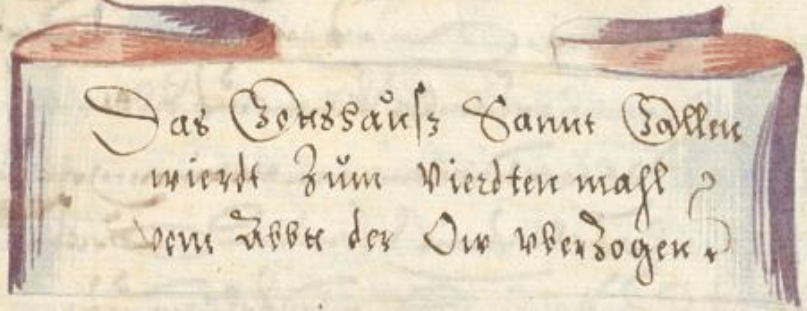 Das Gottshauß Sannt Gallen
wierdt Zum Vierdten mahl
vom Abbte der Ow vberzogen